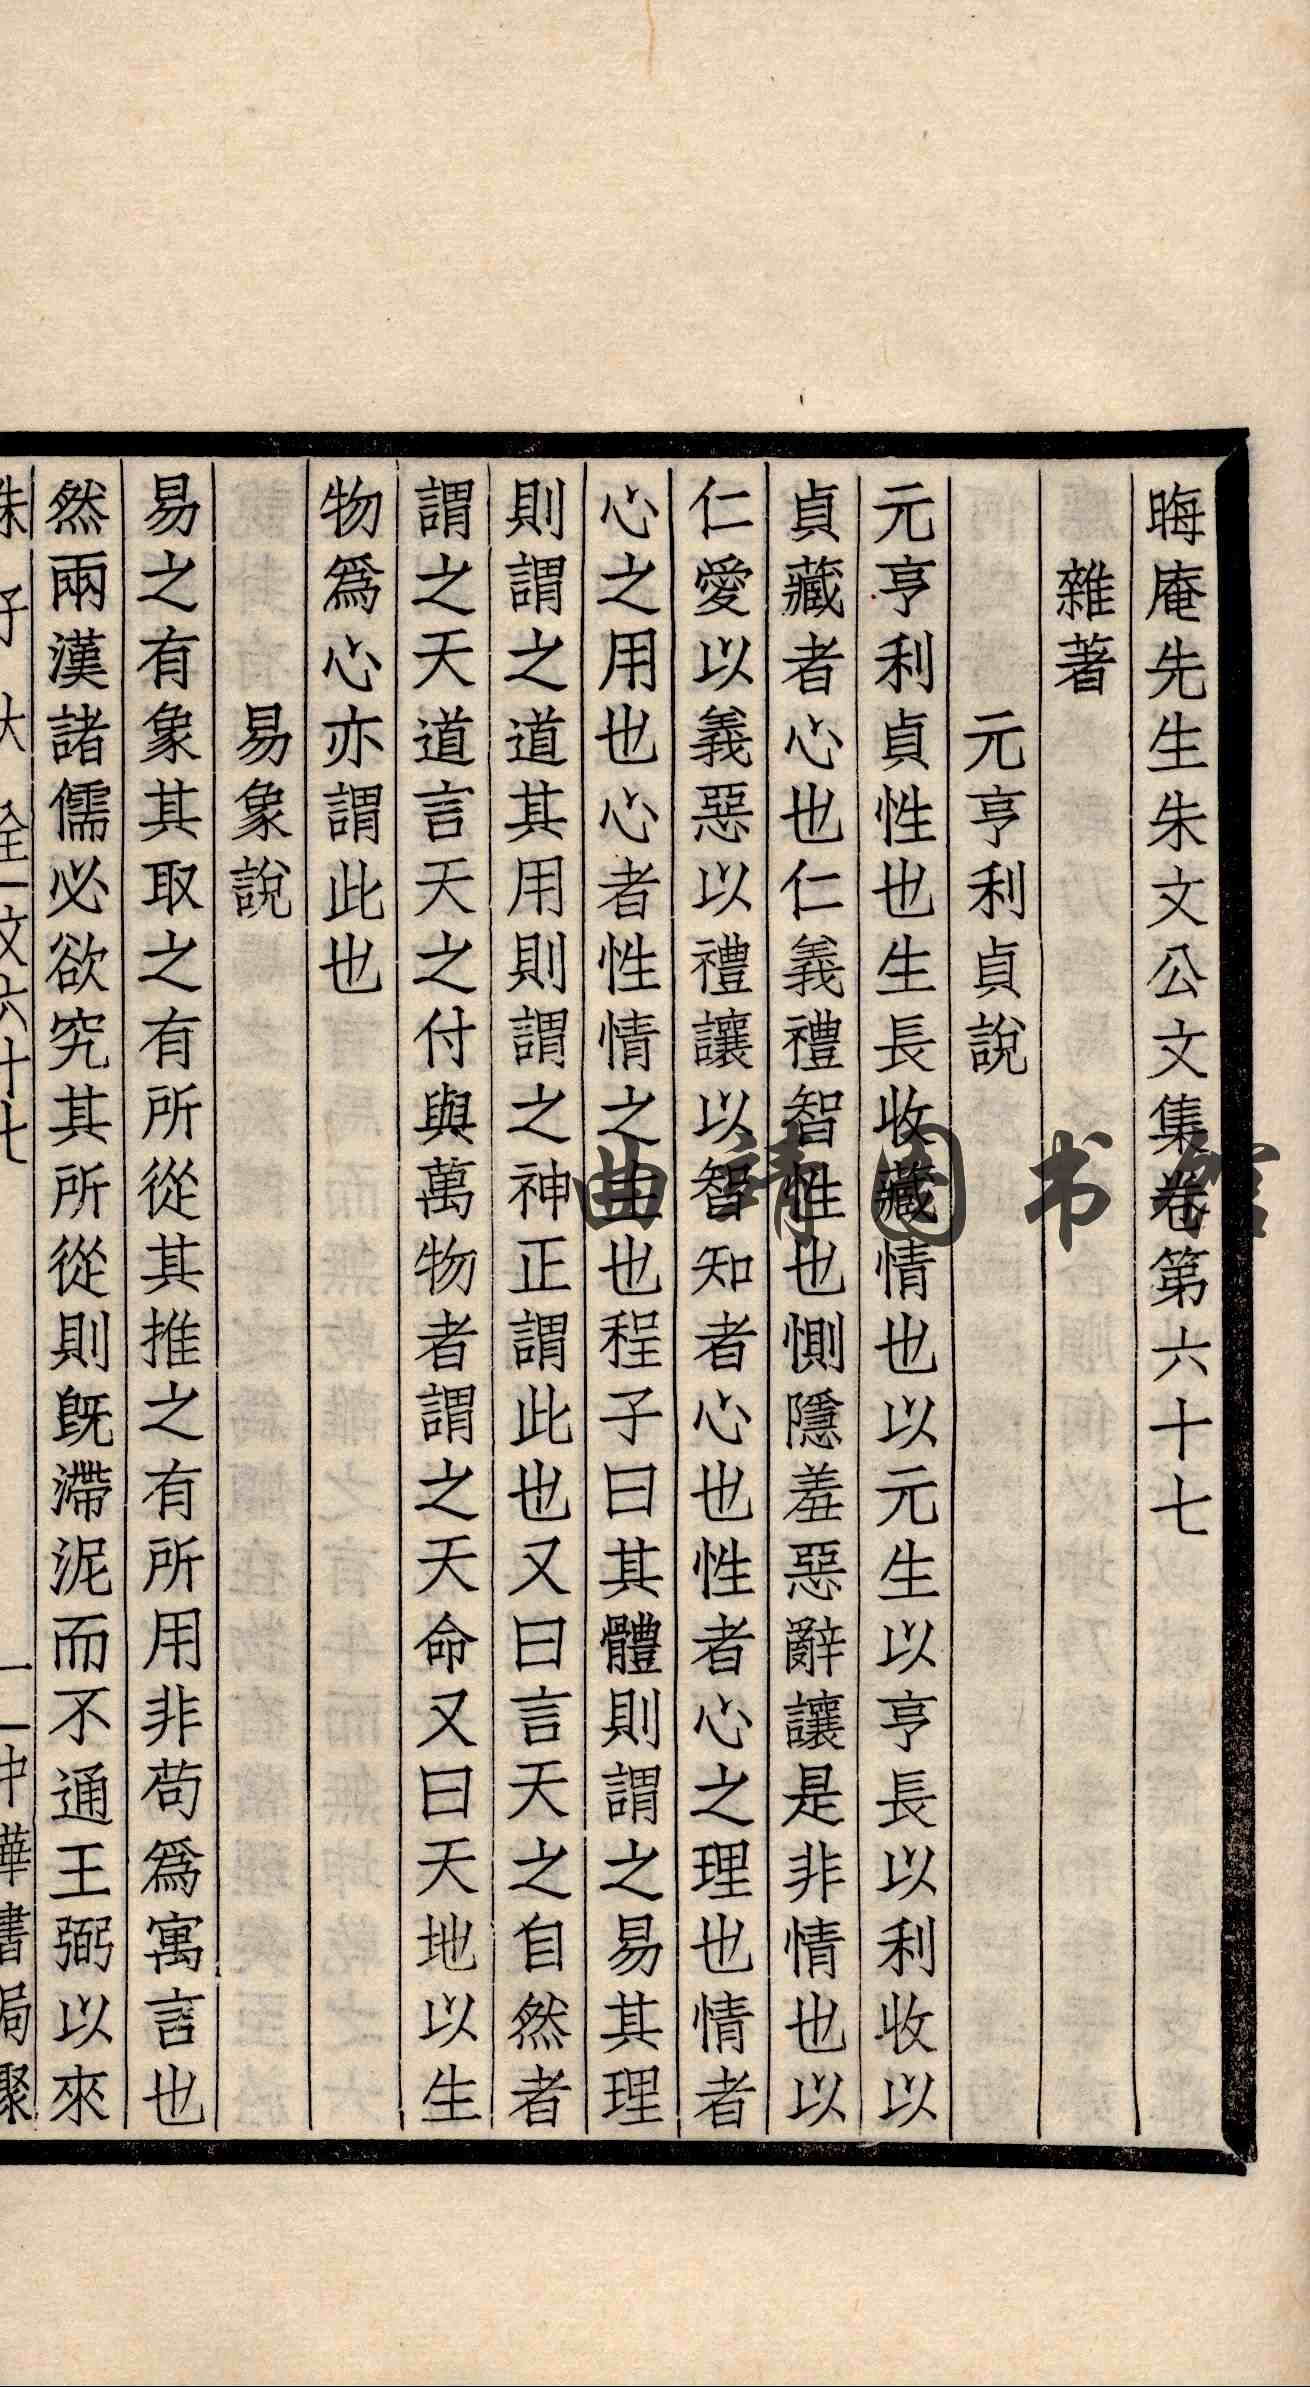 晦庵先生朱文公文集卷第六十七
雜著
元亨利貞說
元亨利貞性也生長收藏情也以元生以亨長以利收以
貞藏者心也仁義禮智性也惻隱羞惡辭讓是非情也以
仁愛以義惡以禮讓以智知者心也性者心之理也情者
心之用也心者性情之主也程子曰其體則謂之易其理
則謂之道其用則謂之神正謂此也又曰言天之自然者
謂之天道言天之付與萬物者謂之天命又曰天地以生
物爲心亦謂此也
易象說
易之有象其取之有所從其推之有所用非苟爲寓言也
然兩漢諸儒必欲究其所從則既滯泥而不通王弼以來
朱子大全文六十七 一 中華書局聚
曲靖图书馆